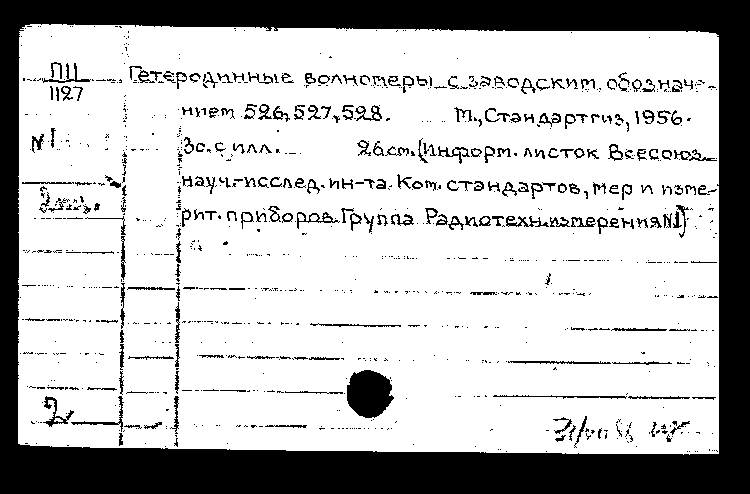 П11
1127
Гетеродинные волномеры с заводским обозначе-
нием 526, 527, 528. М., Стандартгиз, 1956.
N1
3с. с илл. 26см. (Информ. листок Всесоюз.
науч.-исслед. ин-та. Ком. стандартов, мер и изме-
2экз.
рит. приборов. Группа Радиотехн. измерения N1)
2